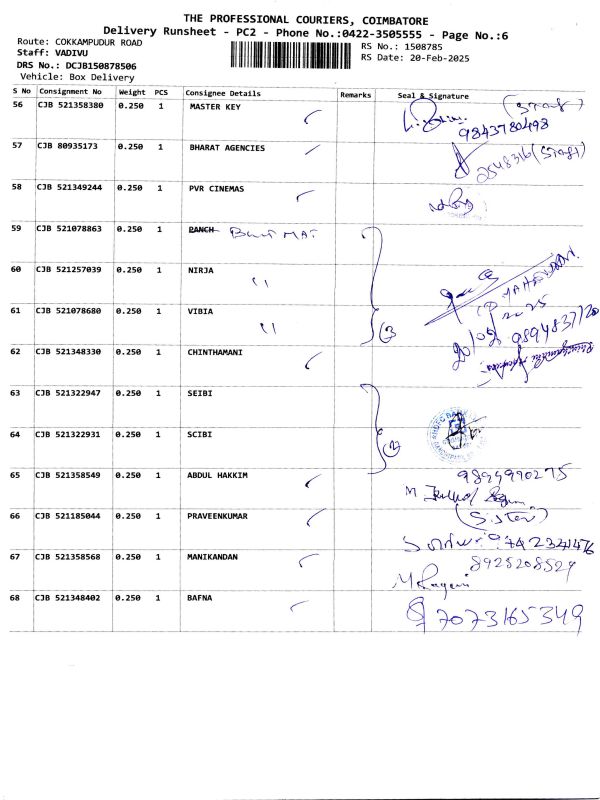 THE PROFESSIONAL COURIERS, COIMBATORE
Delivery Runsheet - PC2 - Phone No.:0422-3505555 - Page No.:6
Route: COKKAMPUDUR ROAD
RS No.: 1508785
Staff: VADIVU
RS Date: 20-Feb-2025
DRS No.: DCJB150878506
Vehicle: Box Delivery
S No Consignment No Weight PCS Consignee Details Remarks Seal & Signature
56 CJB 521358380 0.250 1 MASTER KEY
9843780498
57 CJB 80935173 0.250 1 BHARAT AGENCIES
2548316 (Staff)
58 CJB 521349244 0.250 1 PVR CINEMAS
59 CJB 521078863 0.250 1 RANCH
60 CJB 521257039 0.250 1 NIRJA
61 CJB 521078680 0.250 1 VIBIA
3
62 CJB 521348330 0.250 1 CHINTHAMANI
63 CJB 521322947 0.250 1 SEIBI
64 CJB 521322931 0.250 1 SCIBI
2
65 CJB 521358549 0.250 1 ABDUL HAKKIM
9894990275
66 CJB 521185044 0.250 1 PRAVEENKUMAR
(Sister)
67 CJB 521358568 0.250 1 MANIKANDAN
8925208529
68 CJB 521348402 0.250 1 BAFNA
7073165349